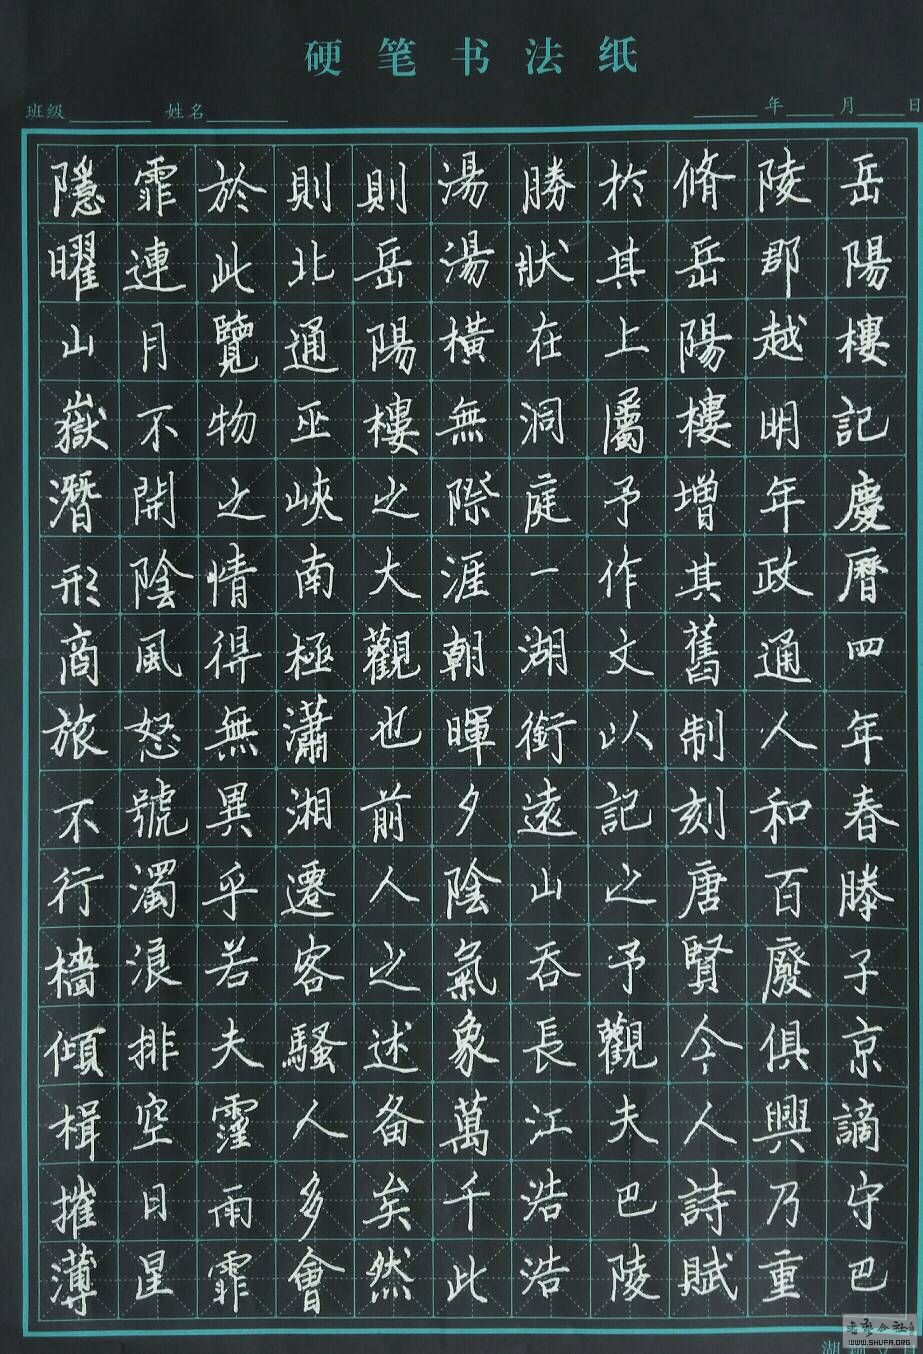 硬笔书法纸
班级 姓名 年 月 日
岳陽樓記慶曆四年春滕子京謫守巴
陵郡越明年政通人和百廢俱興乃重
脩岳陽樓增其舊制刻唐賢今人詩賦
於其上屬予作文以記之予觀夫巴陵
勝狀在洞庭一湖銜遠山吞長江浩浩
湯湯橫無際涯朝暉夕陰氣象萬千此
則岳陽樓之大觀也前人之述备矣然
則北通巫峽南極瀟湘遷客騷人多會
於此覽物之情得無異乎若夫霪雨霏
霏連月不開陰風怒號濁浪排空日星
隱曜山嶽潛形商旅不行檣傾楫摧薄
WWW.SHUFA.ORG